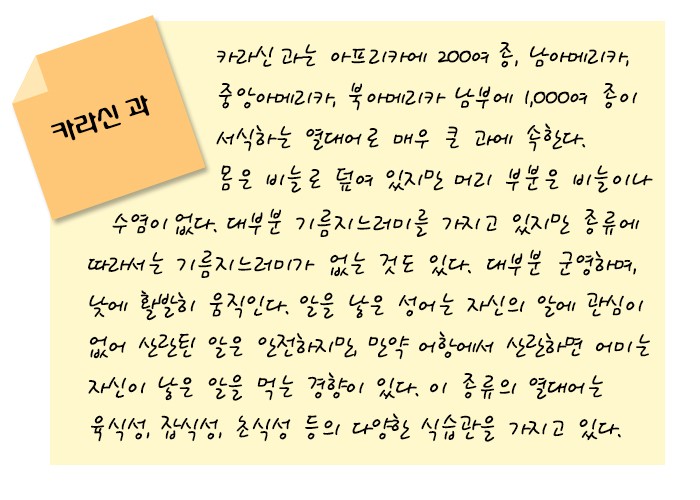 카라신 과
카라신 과는 아프리카에 200여 종, 남아메리카,
중앙아메리카, 북아메리카 남부에 1,000여 종이
서식하는 열대어로 매우 큰 과에 속한다.
몸은 비늘로 덮여 있지만 머리 부분은 비늘이나
수염이 없다. 대부분 기름지느러미를 가지고 있지만 종류에
따라서는 기름지느러미가 없는 것도 있다. 대부분 군영하며,
낮에 활발히 움직인다. 알을 낳은 성어는 자신의 알에 관심이
없어 산란된 알은 안전하지만, 만약 어항에서 산란하면 어미는
자신이 낳은 알을 먹는 경향이 있다. 이 종류의 열대어는
육식성, 잡식성, 초식성 등의 다양한 식습관을 가지고 있다.